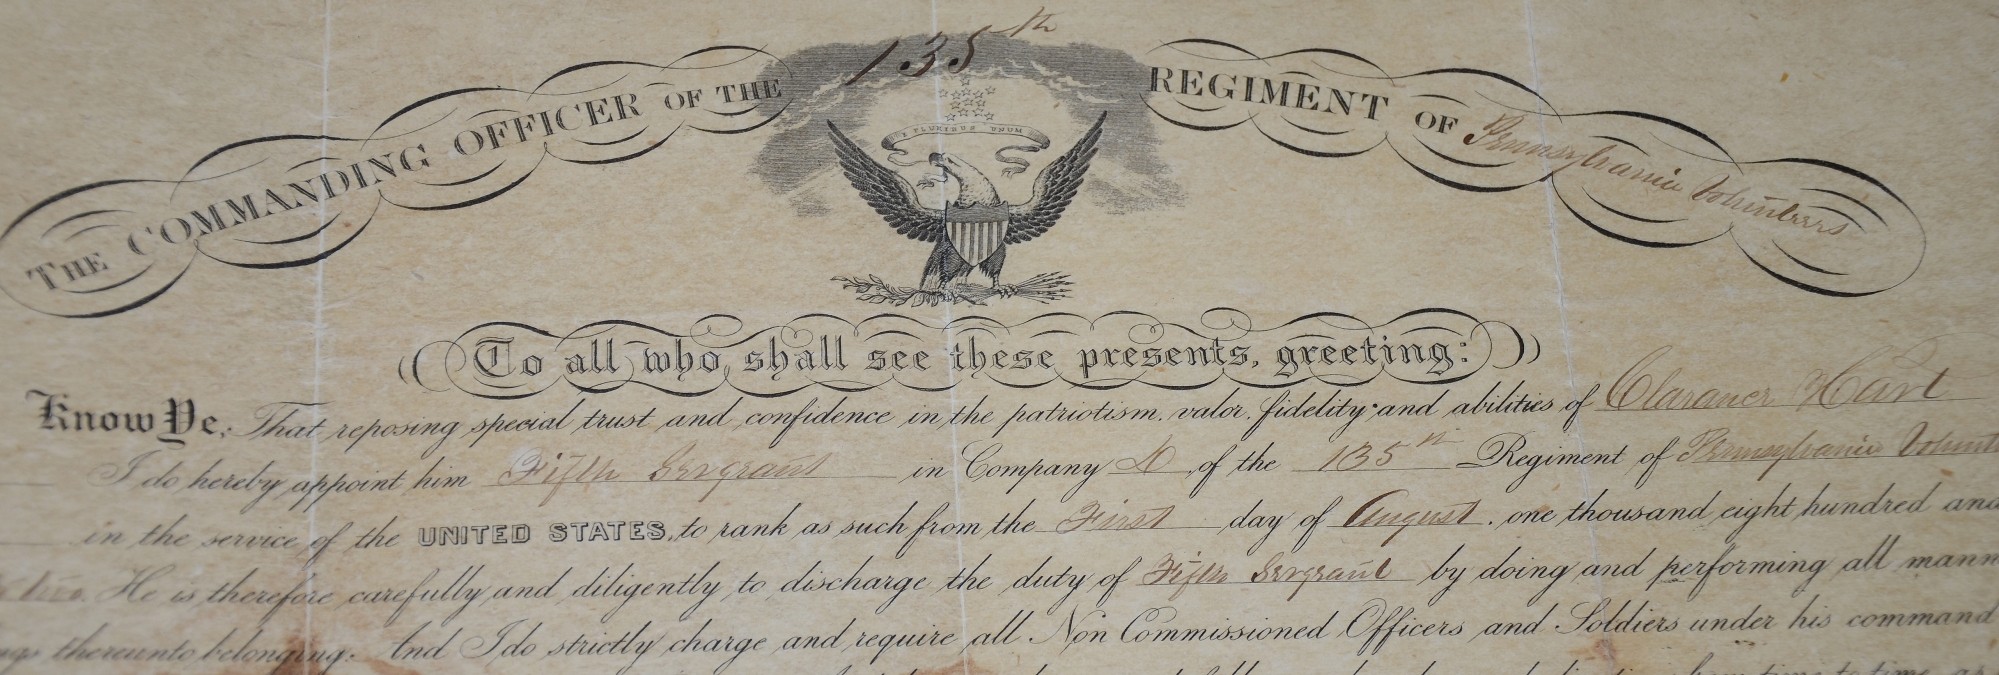 THE COMMANDING OFFICER OF THE 135th REGIMENT OF Pennsylvania Volunteers
E PLURIBUS UNUM
To all who shall see these presents, greeting:
Know Ye, That reposing special trust and confidence in the patriotism, valor, fidelity and abilities of Clarance Hart
I do hereby appoint him Fifth Sergeant in Company of the 135th Regiment of Pennsylvania Volunt
in the service of the UNITED STATES, to rank as such from the First day of August, one thousand eight hundred and
He is therefore carefully and diligently to discharge the duty of Fifth Sergeant by doing and performing all mann
ngs thereunto belonging: And I do strictly charge and require all Non Commissioned Officers and Soldiers under his command